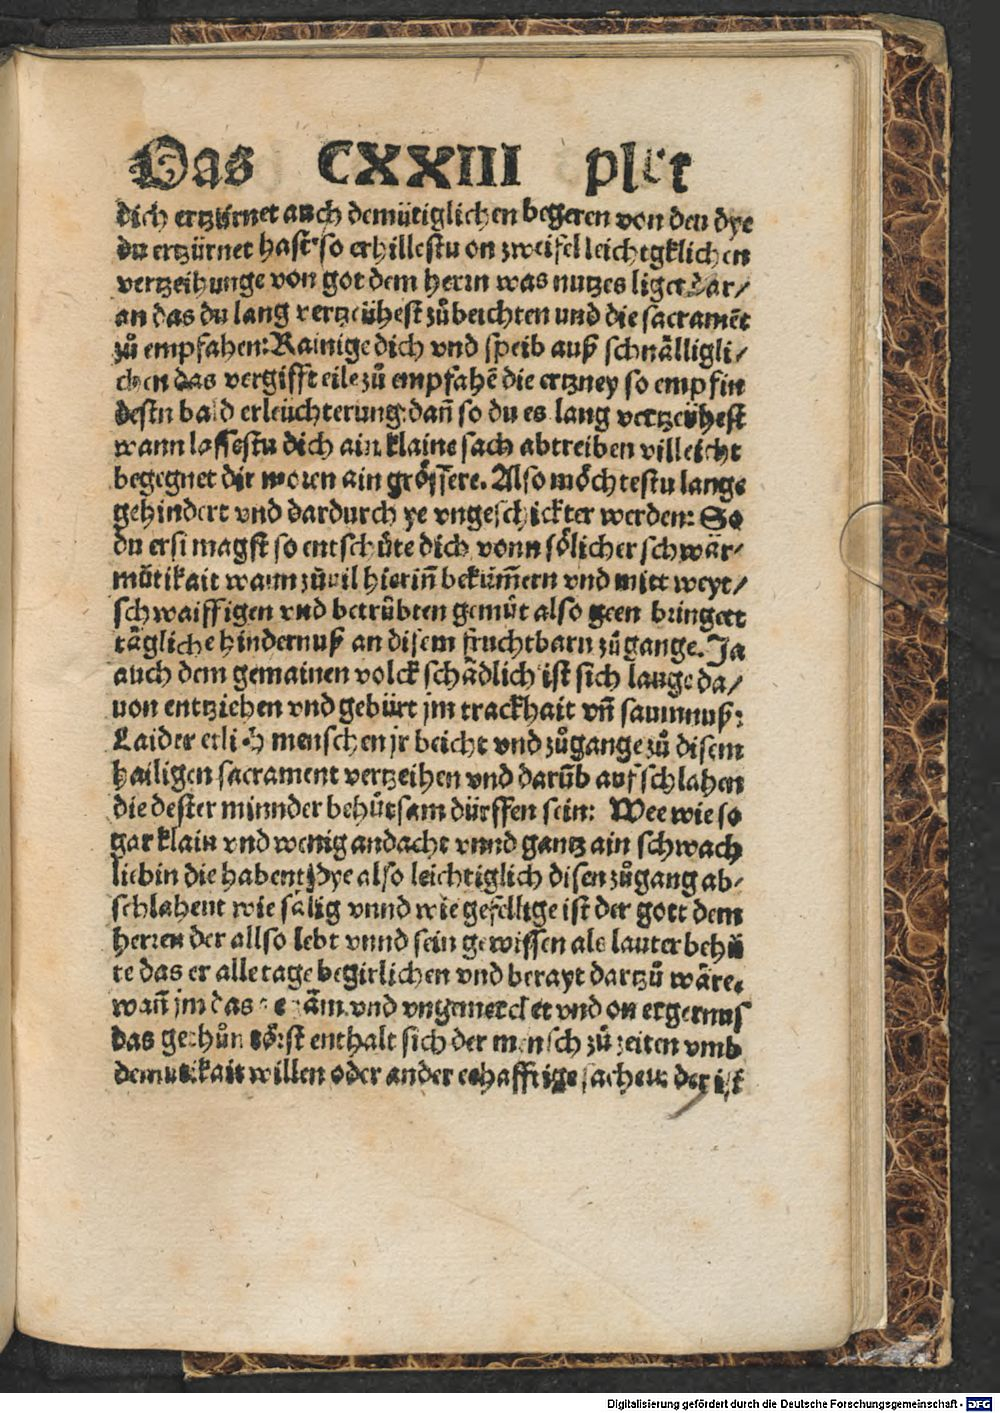 Das CXXIII plet
dich ertzürnet auch demütiglichen begeren von den dye
du ertzürnet hast so erhillestu on zweifel leichtgklichen
vertzeihunge von got dem herrn was nutzes liget dar/
an das du lang vertzeühest zůbeichten und die sacramēt
zů empfahen: Rainige dich vnd speib auß schnälligli/
chen das vergifft eile zů empfahē die ertzney so empfin
destu bald erleüchterung: dañ so du es lang vertzeühest
wann lassestu dich ain klaine sach abtreiben villeicht
begegnet dir moren ain grössere. Also möchtestu lange
gehindert vnd dardurch ye vngeschickter werden: So
du ersi magst so entschüte dich vonn sölicher schwär⸗
mütikait wann zůuil hieriñ beküm̄ern vnd mitt weyt/
schwaiffigen vnd betrübten gemüt also geen bringett
tägliche hindernuß an disem fruchtbarn zůgange. Ja
auch dem gemainen volck schädlich ist sich lange da/
uon entziehen vnd gebürt jm trackhait vñ saumnuß:
Laider etlich menschen jr beicht vnd zůgange zů disem
hailigen sacrament vertzeihen vnd darūb aufschlahen
die dester minnder behütsam dürffen sein: Wee wie so
gar klain vnd wenig andacht vnnd gantz ain schwach
liebin die habent dye also leichtiglich disen zůgang ab⸗
schlahent wie sälig vnnd wie gefellige ist der gott dem
herren der allso lebt vnnd sein gewissen als lauter behü
te das er alle tage begirlichen vnd berayt dartzů wäre.
wañ jm das vnd vngemercket vnd on ergernus
das geschůn törst enthalt sich der mensch zů zeiten vmb
demutikait willen oder ander eehafftige sachen: der ist
Digitalisierung gefördert durch die Deutsche Forschungsgemeinschaft - DFG